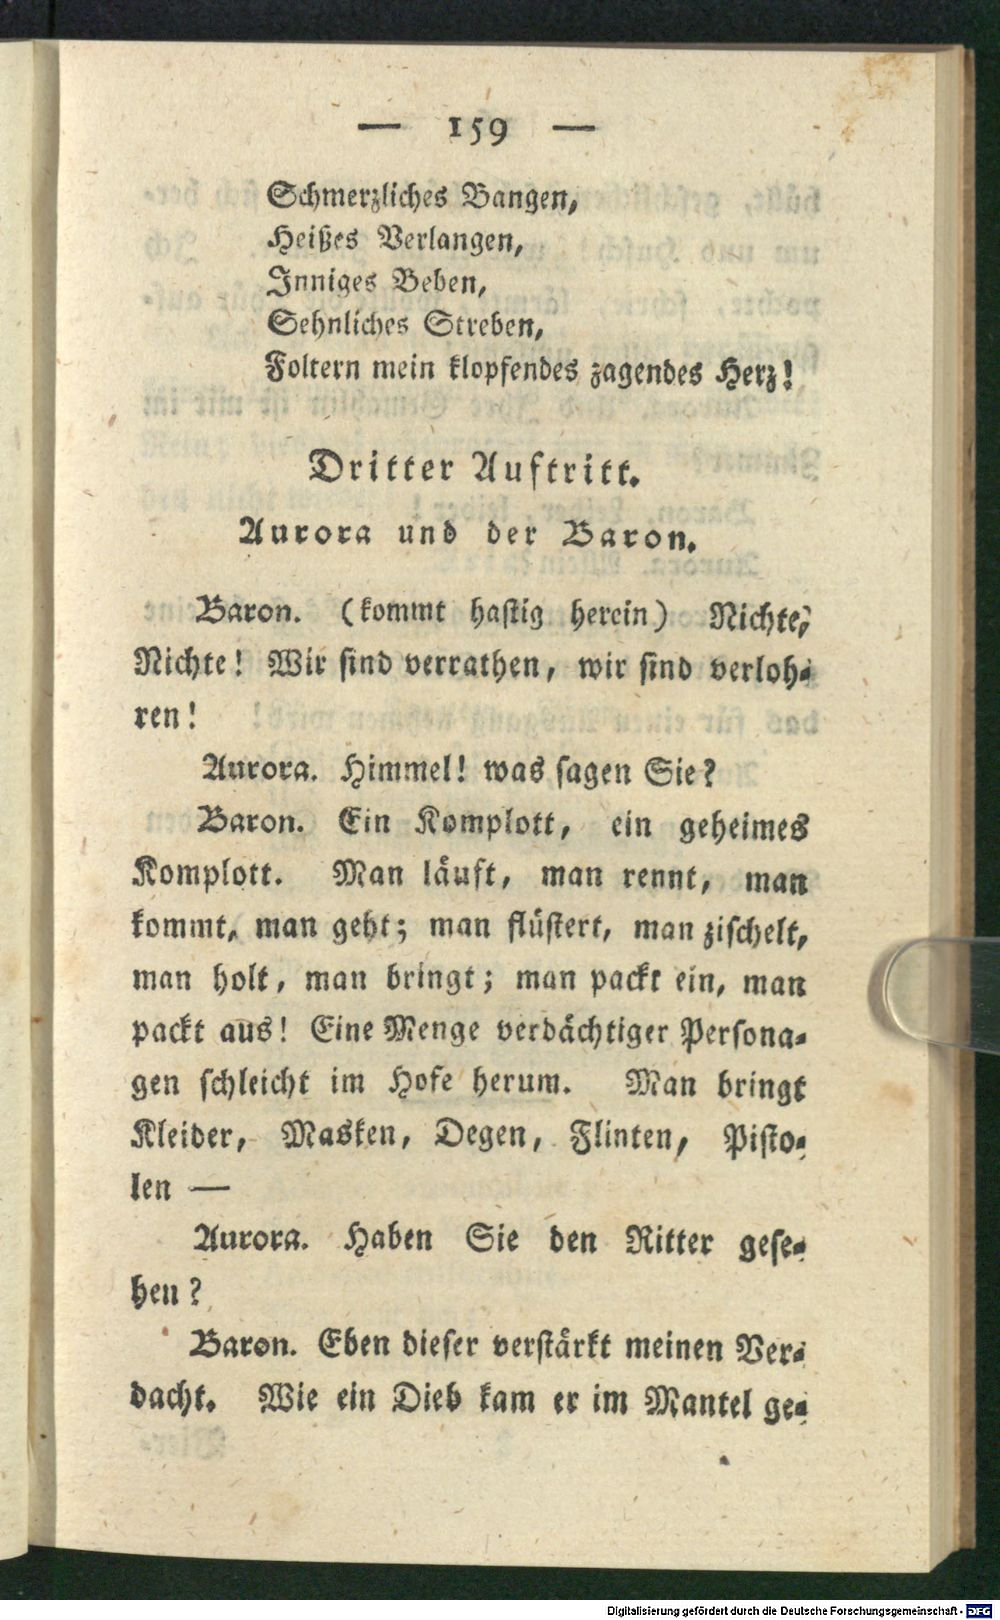 — 159 —
Schmerzliches Bangen,
Heißes Verlangen,
Inniges Beben,
Sehnliches Streben,
Foltern mein klopfendes zagendes Herz!
Dritter Auftritt.
Aurora und der Baron.
Baron. (kommt hastig herein) Nichte,
Nichte! Wir sind verrathen, wir sind verloh-
ren!
Aurora. Himmel! was sagen Sie?
Baron. Ein Komplott, ein geheimes
Komplott. Man läuft, man rennt, man
kommt, man geht; man flüstert, man zischelt,
man holt, man bringt; man packt ein, man
packt aus! Eine Menge verdächtiger Persona-
gen schleicht im Hofe herum. Man bringt
Kleider, Masken, Degen, Flinten, Pisto-
len —
Aurora. Haben Sie den Ritter gese-
hen?
Baron. Eben dieser verstärkt meinen Ver-
dacht. Wie ein Dieb kam er im Mantel ge-
Digitalisierung gefördert durch die Deutsche Forschungsgemeinschaft - DFG